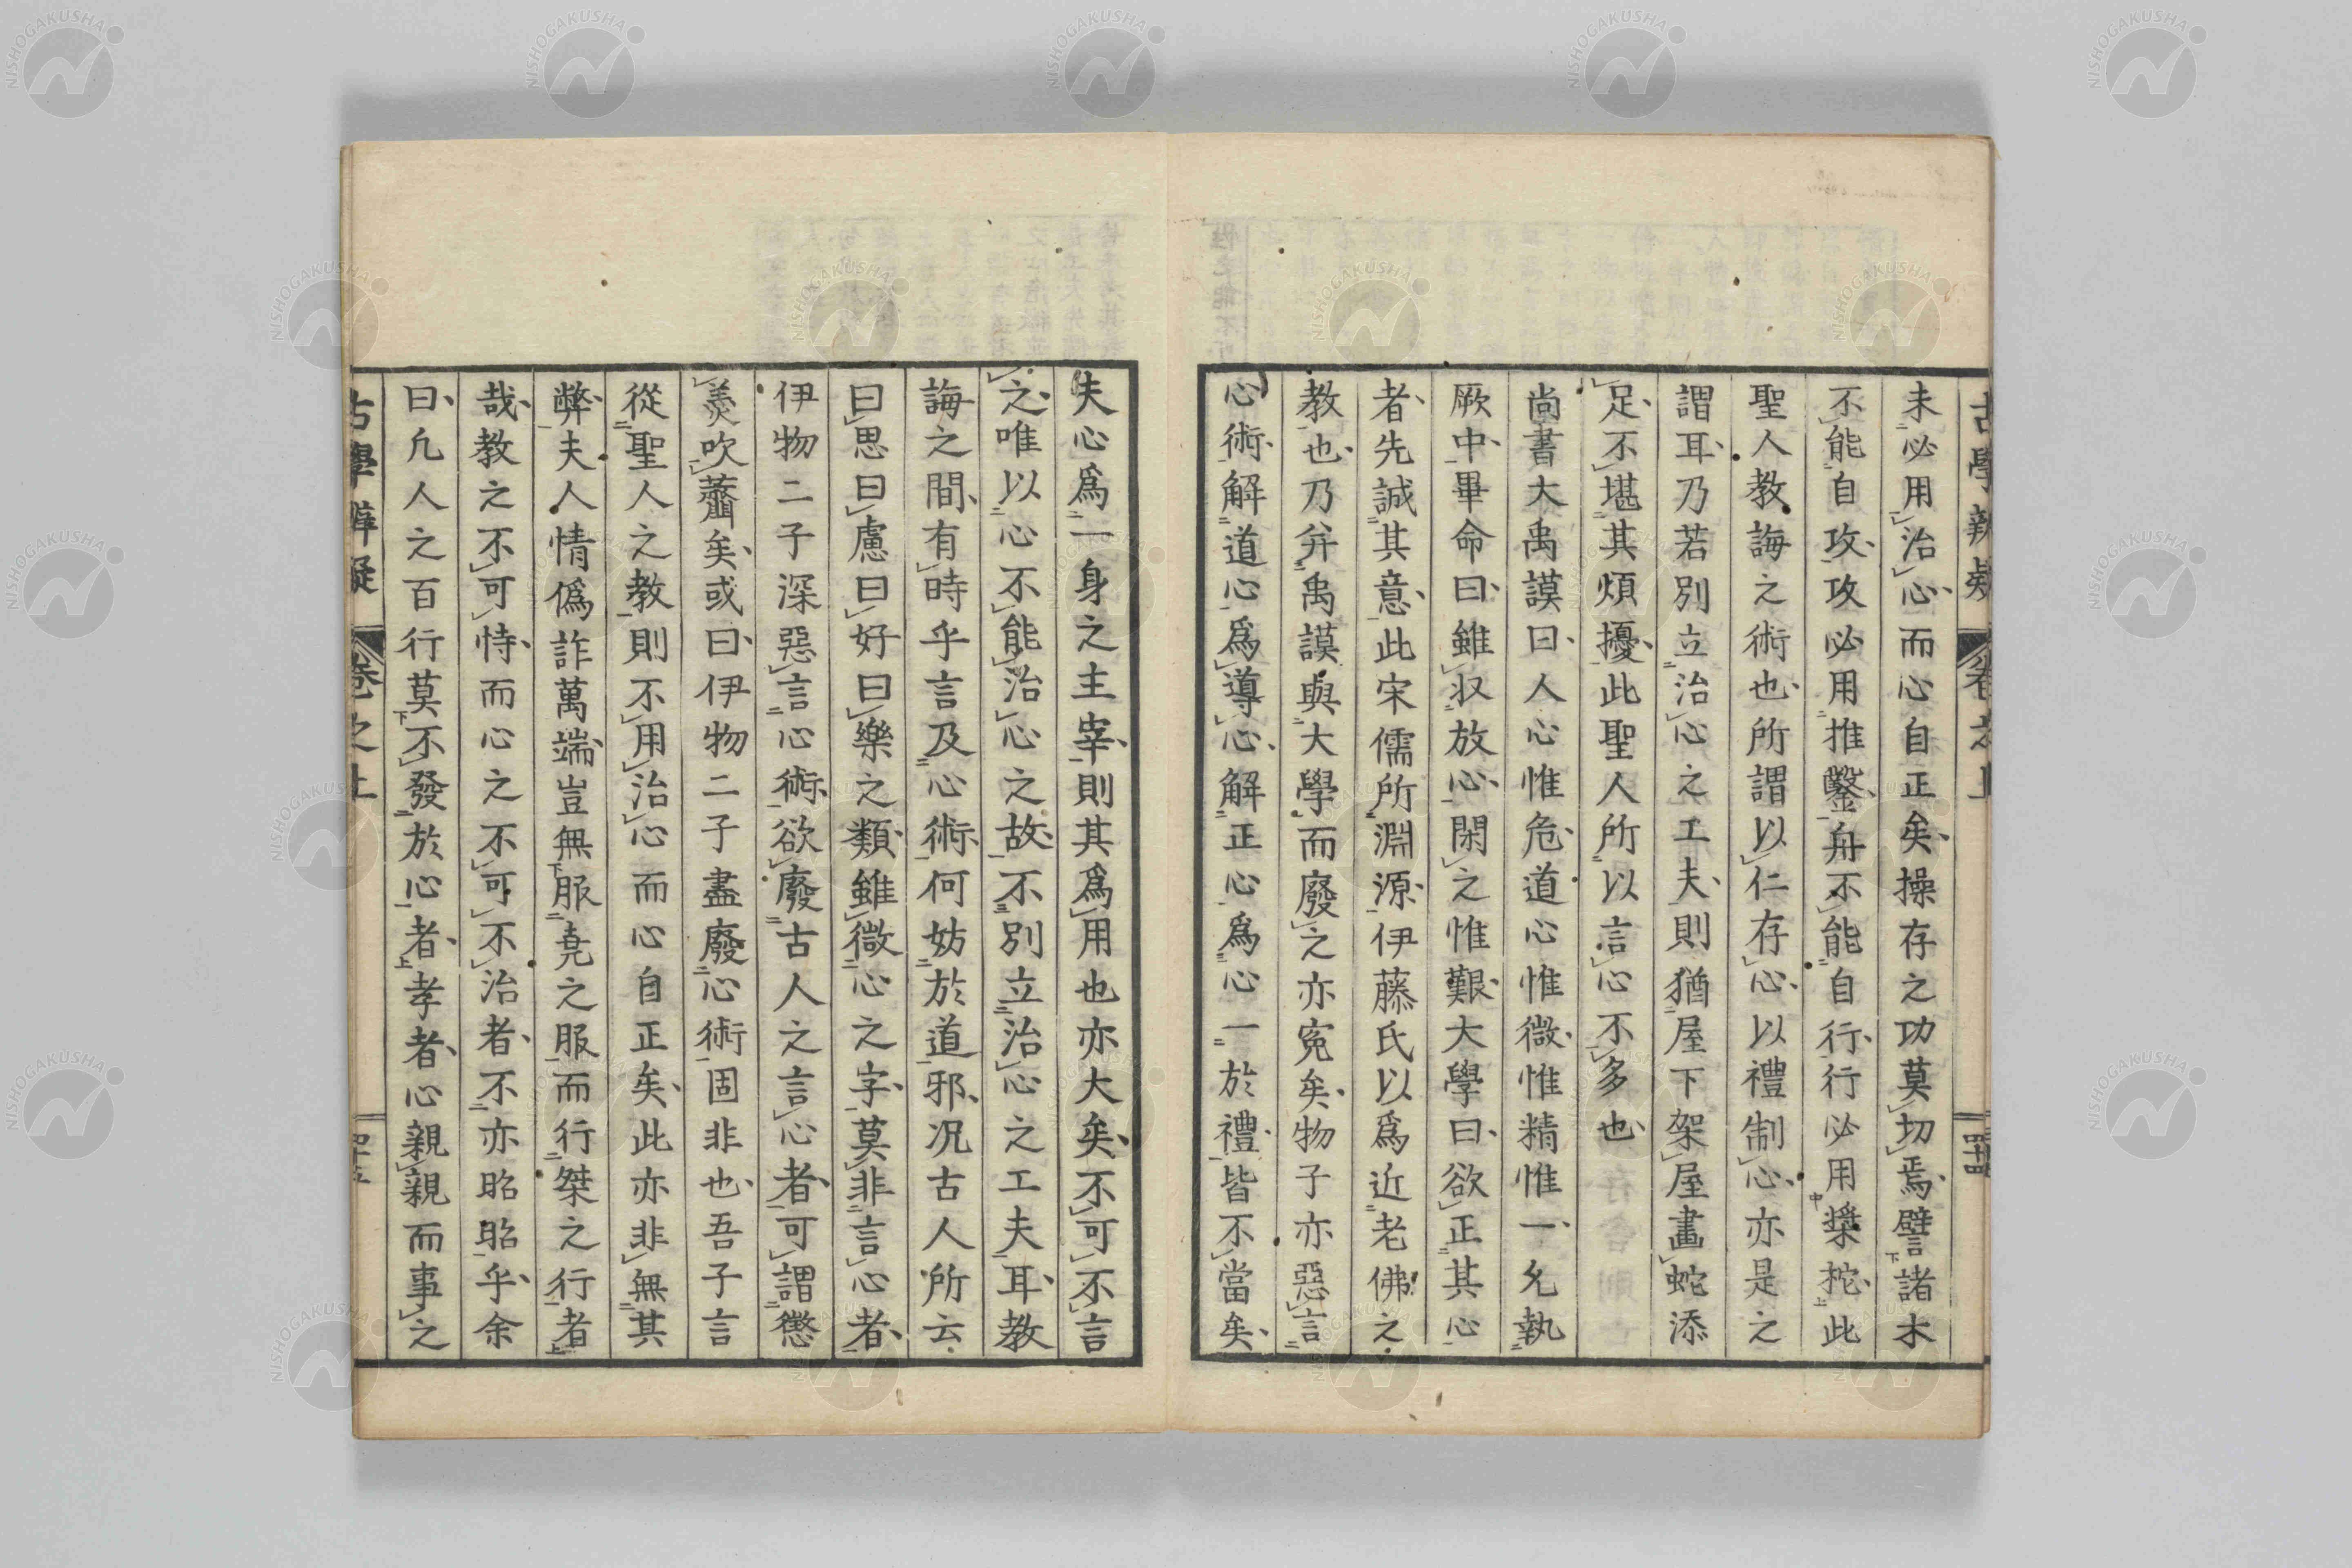 未必用治心而心自正矣操存之功莫切焉譬諸木
不能自攻攻必用推鑿舟不能自行行必用槳柁此
聖人教誨之術也所謂以仁存心以禮制心亦是之
謂耳乃若別立治心之工夫則猶屋下架屋畫蛇添
足不堪其煩擾此聖人所以言心不多也
尚書大禹謨曰人心惟危道心惟微惟精惟一允執
厥中畢命曰雖収放心閑之惟艱大學曰欲正其心
者先誠其意此宋儒所淵源伊藤氏以爲近老佛之
教也乃并禹謨與大學而廢之亦寃矣物子亦惡言
心術解道心爲導心解正心爲心一於禮皆不當矣
夫心爲一身之主宰則其爲用也亦大矣不可不言
之唯以心不能治心之故不別立治心之工夫耳教
誨之間有時乎言及心術何妨於道邪况古人所云
曰思曰慮曰好曰樂之類雖微心之字莫非言心者
伊物二子深惡言心術欲廢古人之言心者可謂懲
羮吹虀矣或曰伊物二子盡廢心術固非也吾子言
從聖人之教則不用治心而心自正矣此亦非無其
弊夫人情僞詐萬端豈無服堯之服而行桀之行者
哉教之不可恃而心之不可不治者不亦昭昭乎余
曰凢人之百行莫不發於心者孝者心親親而事之
古學辨疑
卷之上
四十四
古學辨疑
卷之上
四十五
NISHOGAKUSHA